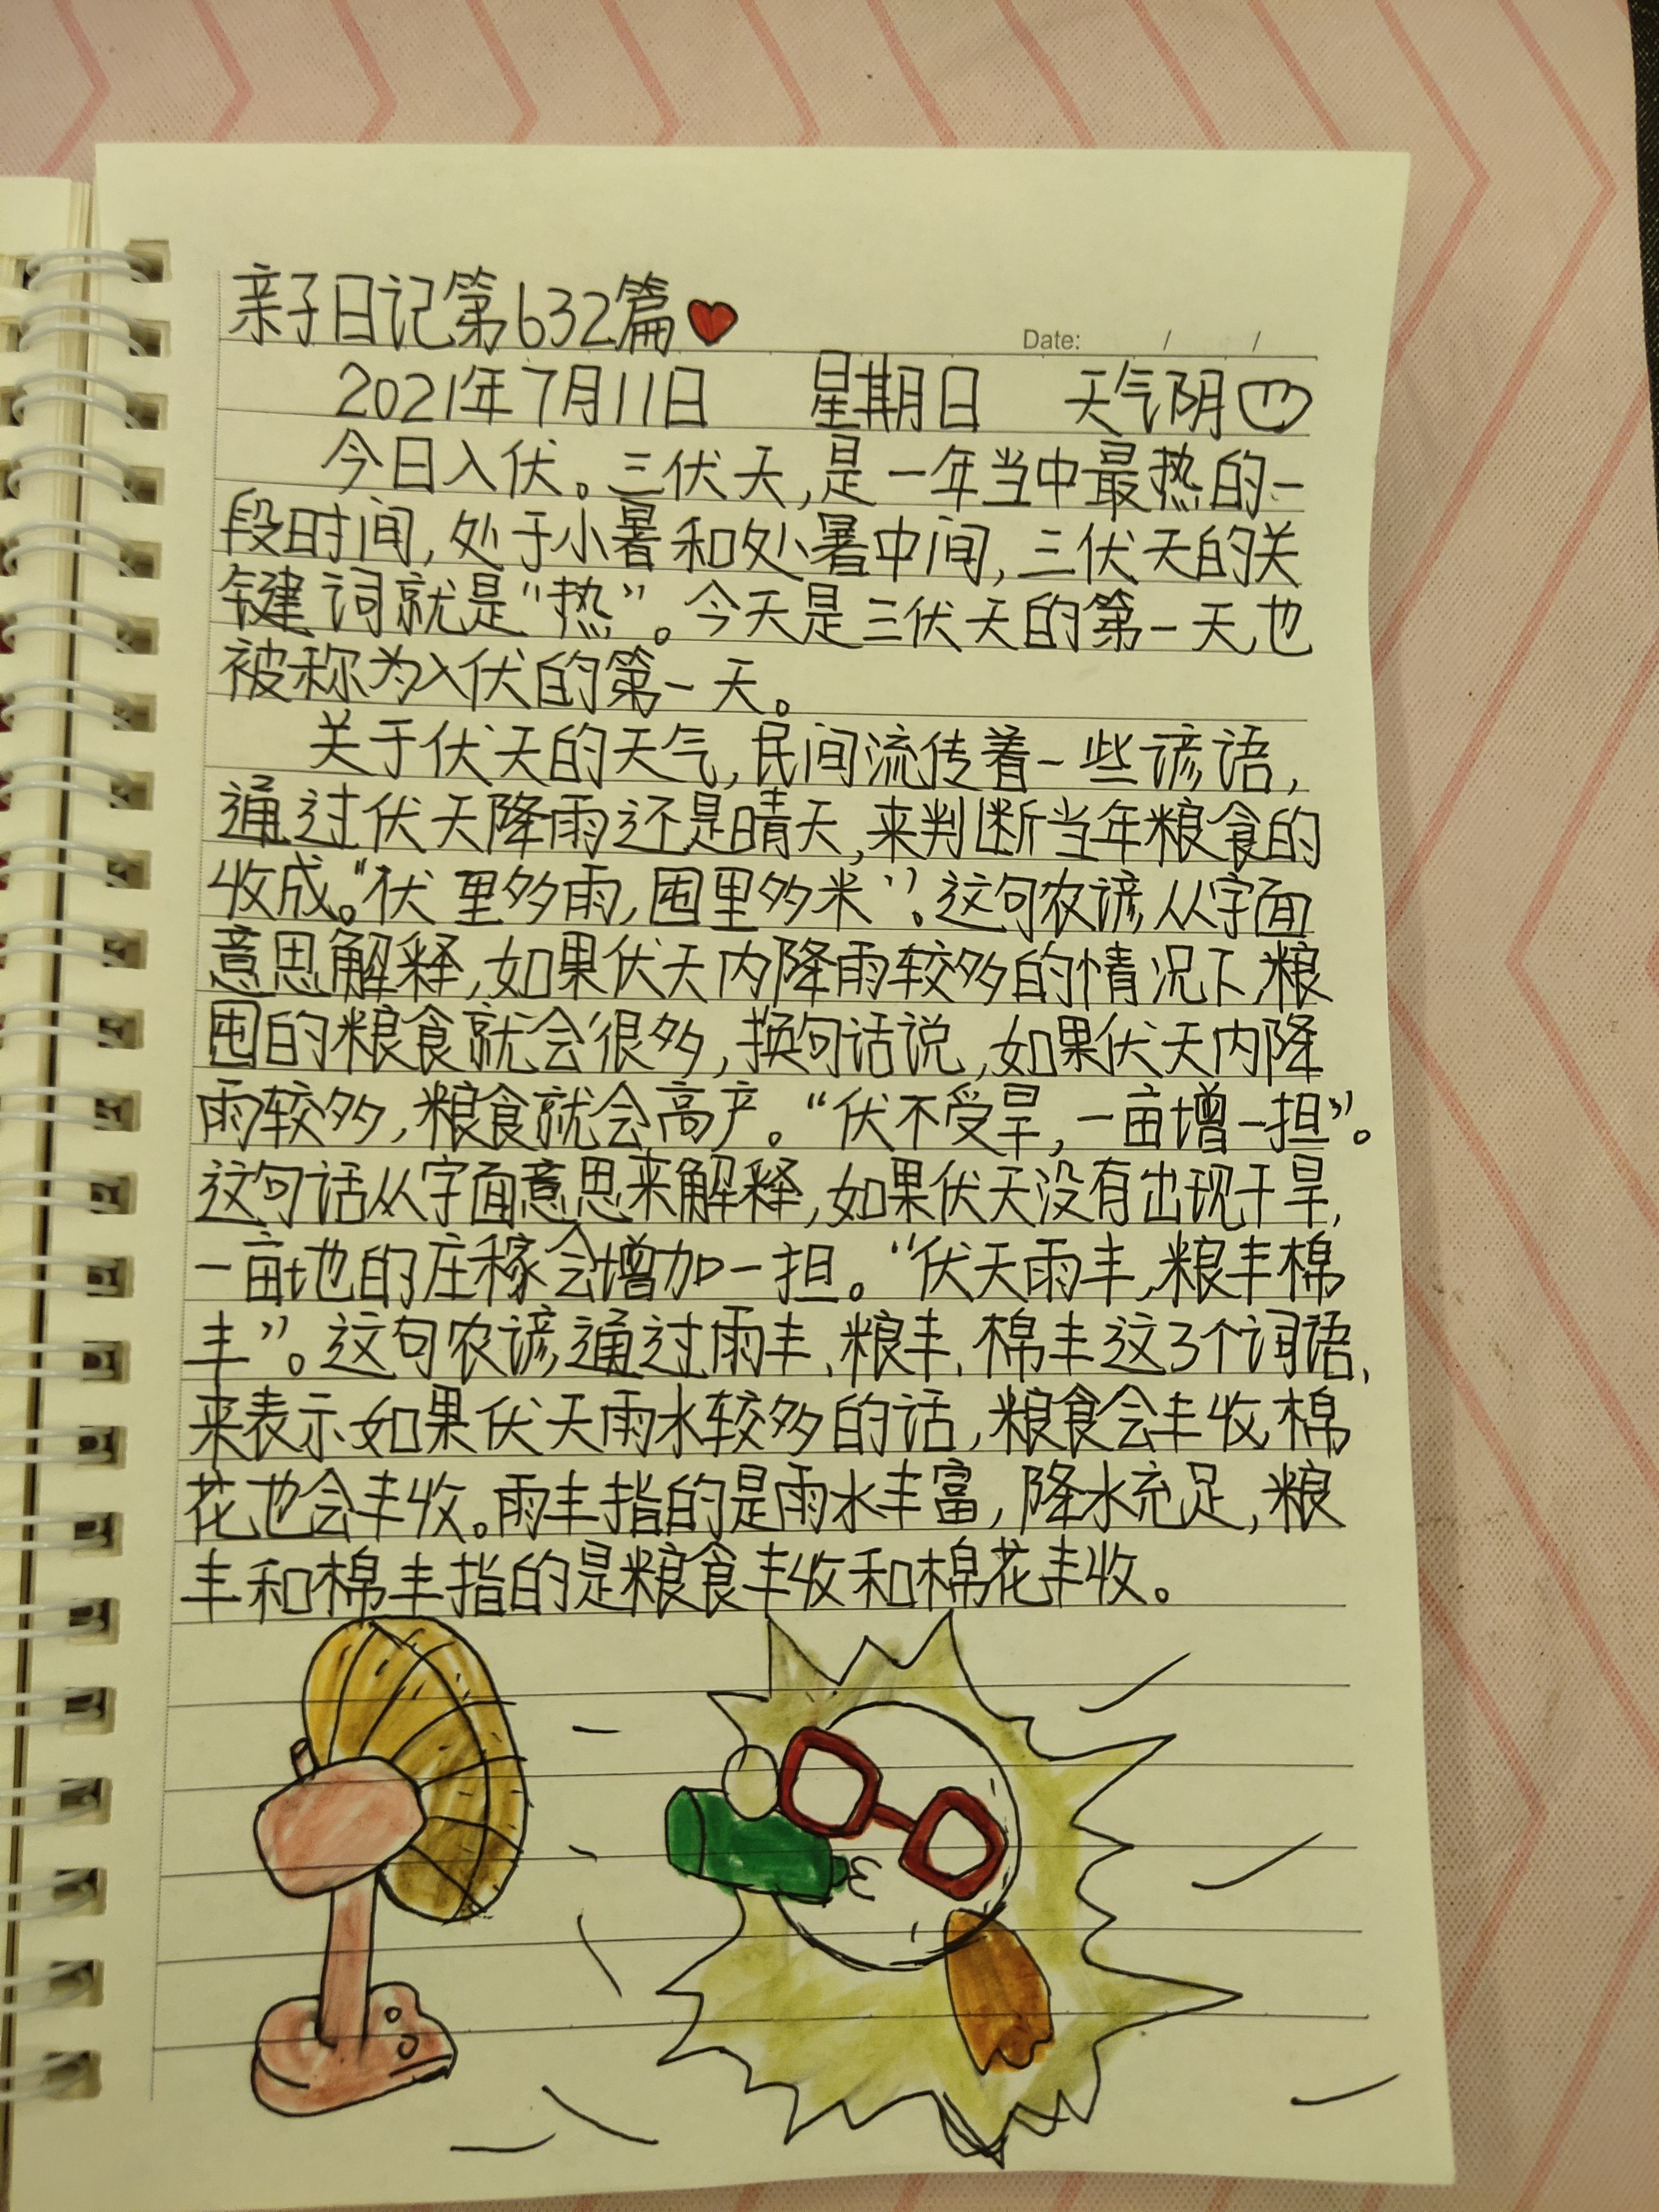 亲子日记第632篇
Date: / /
2021年7月11日 星期日 天气阴
今日入伏。三伏天,是一年当中最热的一
段时间,处于小暑和处暑中间,三伏天的关
键词就是“热”。今天是三伏天的第一天,也
被称为入伏的第一天。
关于伏天的天气,民间流传着一些谚语,
通过伏天降雨还是晴天,来判断当年粮食的
收成。“伏里多雨,囤里多米”。这句农谚,从字面
意思解释,如果伏天内降雨较多的情况下,粮
囤的粮食就会很多,换句话说,如果伏天内降
雨较多,粮食就会高产。“伏不受旱,一亩增一担”。
这句话从字面意思来解释,如果伏天没有出现干旱,
一亩地的庄稼会增加一担。“伏天雨丰,粮丰棉
丰”。这句农谚,通过雨丰、粮丰、棉丰这3个词语,
来表示如果伏天雨水较多的话,粮食会丰收,棉
花也会丰收。雨丰指的是雨水丰富,降水充足,粮
丰和棉丰指的是粮食丰收和棉花丰收。